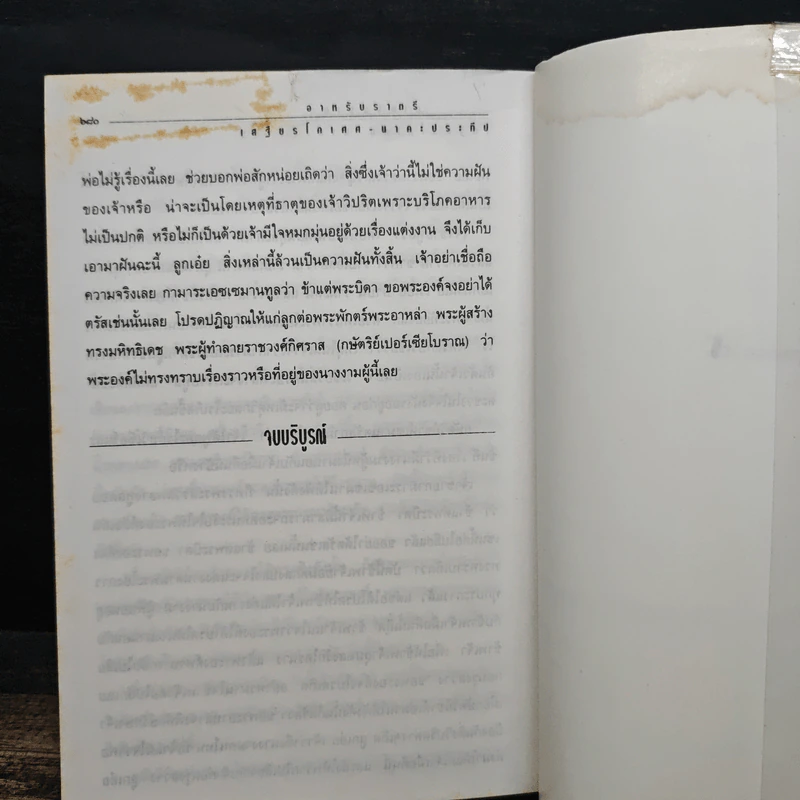 อาหรับราตรี
๒๘๖
เสฐียรโกเศศ-นาคะประทีป
พ่อไม่รู้เรื่องนี้เลย ช่วยบอกพ่อสักหน่อยเถิดว่า สิ่งซึ่งเจ้าว่านี้ไม่ใช่ความฝัน
ของเจ้าหรือ น่าจะเป็นโดยเหตุที่ธาตุของเจ้าวิปริตเพราะบริโภคอาหาร
ไม่เป็นปกติ หรือไม่ก็เป็นด้วยเจ้ามีใจหมกมุ่นอยู่ด้วยเรื่องแต่งงาน จึงได้เก็บ
เอามาฝันฉะนี้ ลูกเอ๋ย สิ่งเหล่านี้ล้วนเป็นความฝันทั้งสิ้น เจ้าอย่าเชื่อถือ
ความจริงเลย กามาระเอซเซมานทูลว่า ข้าแต่พระบิดา ขอพระองค์จงอย่าได้
ตรัสเช่นนั้นเลย โปรดปฏิญาณให้แก่ลูกต่อพระพักตร์พระอาหล่า พระผู้สร้าง
ทรงมหิทธิเดช พระผู้ทำลายราชวงศ์กิศราส (กษัตริย์เปอร์เซียโบราณ) ว่า
พระองค์ไม่ทรงทราบเรื่องราวหรือที่อยู่ของนางงามผู้นี้เลย
จบบริบูรณ์